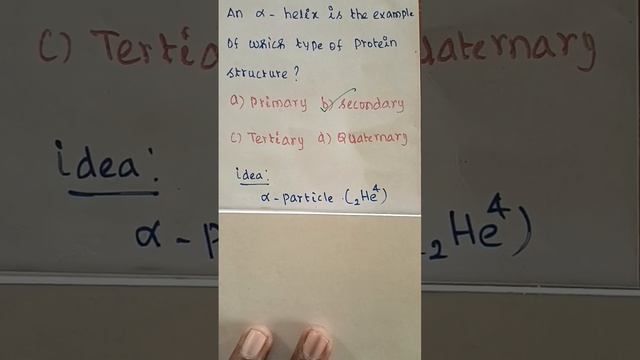 An α - helix is the example
Of which type of protein
structure?
a) Primary b) Secondary
c) Tertiary d) Quaternary
idea:
α - particle (₂He⁴)